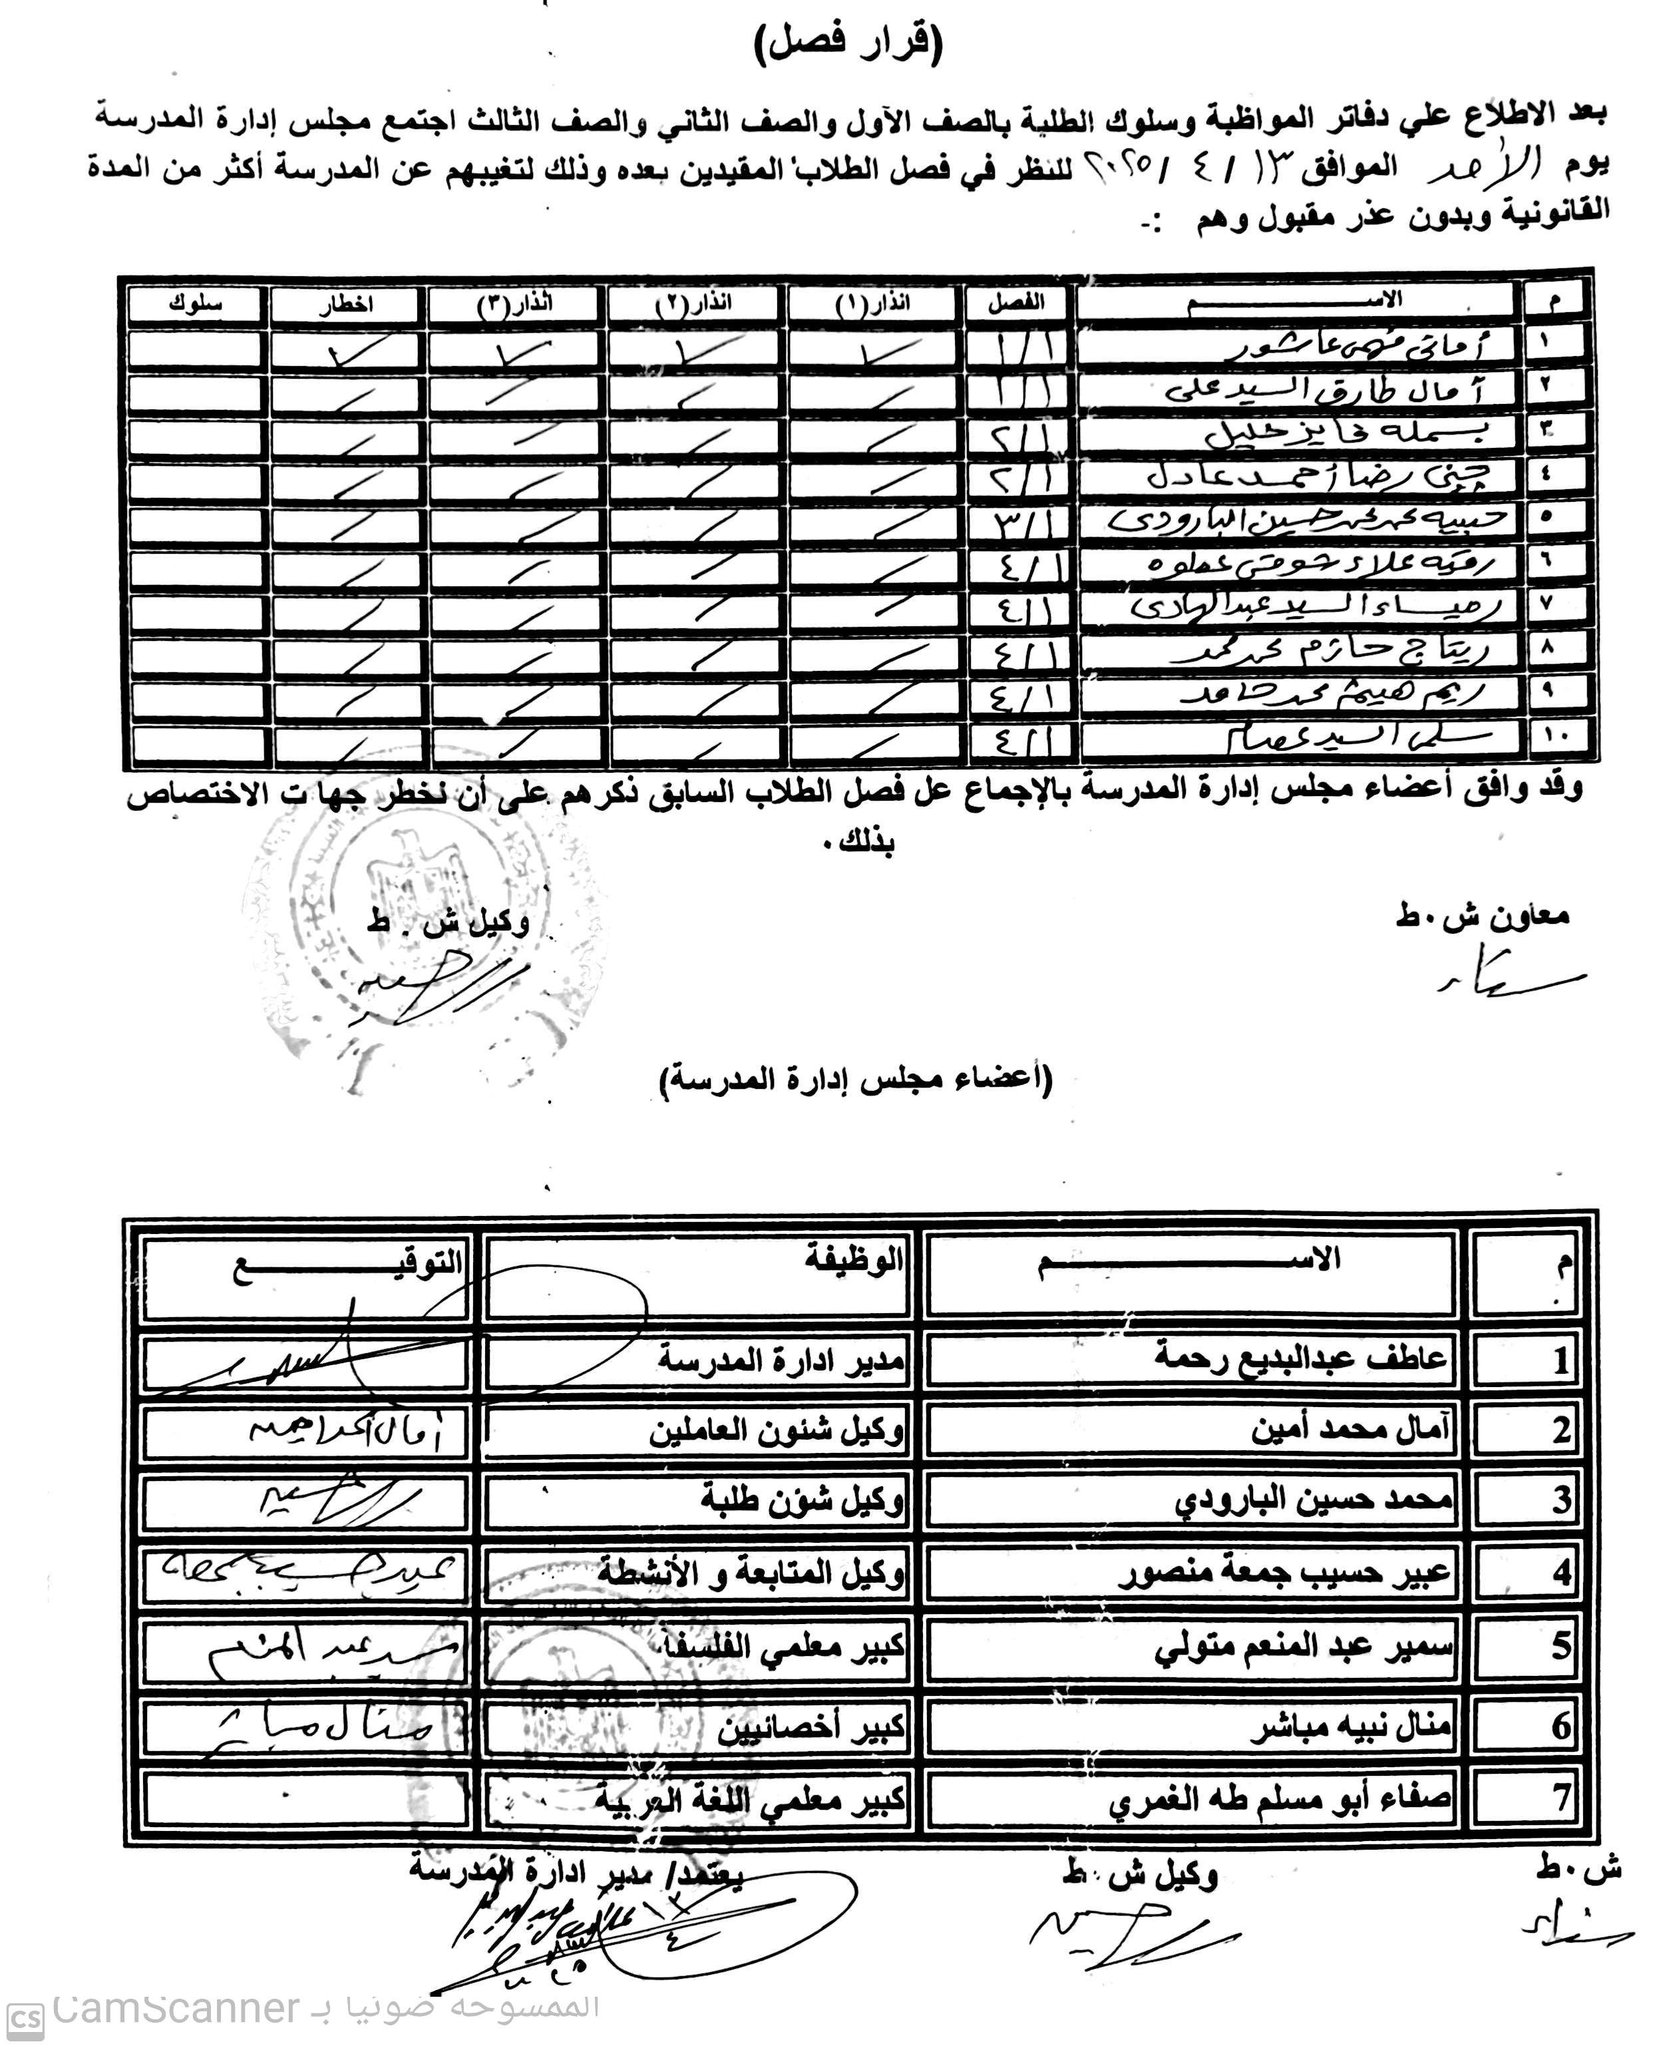 (قرار فصل)
بعد الاطلاع علي دفاتر المواظبة وسلوك الطلبة بالصف الأول والصف الثاني والصف الثالث اجتمع مجلس إدارة المدرسة
يوم الأحد الموافق ١٣ / ٤ / ٢٠٢٥ للنظر في فصل الطلاب المقيدين بعده وذلك لتغيبهم عن المدرسة أكثر من المدة
القانونية وبدون عذر مقبول وهم :-
م الاســــــم الفصل انذار(١) انذار(٢) انذار(٣) اخطار سلوك
١ أماني فهمى عاشور ١/١
٢ آمال طارق السيد على ١/١
٣ بسمله فايز خليل ٢/١
٤ جنى رضا أحمد عادل ٢/١
٥ حبيبه محمد محمد حسين البارودى ٣/١
٦ رقيه علاء شوقى ٤/١
٧ السيد عبدالهادى ٤/١
٨ ريتاج حازم محمد محمد ٤/١
٩ ريم هيثم محمد حامد ٤/١
١٠ سلمى السيد عصام ٤/١
وقد وافق أعضاء مجلس إدارة المدرسة بالإجماع عل فصل الطلاب السابق ذكرهم على أن نخطر جهات الاختصاص
بذلك.
معاون ش.ط وكيل ش.ط
(أعضاء مجلس إدارة المدرسة)
م الاســــــم الوظيفة التوقيــــــع
1 عاطف عبدالبديع رحمة مدير ادارة المدرسة
2 آمال محمد أمين وكيل شئون العاملين
3 محمد حسين البارودي وكيل شؤن طلبة
4 عبير حسيب جمعة منصور وكيل المتابعة و الأنشطة عبير حسيب جمعه
5 سمير عبد المنعم متولي كبير معلمي الفلسفة سمير عبد المنعم
6 منال نبيه مباشر كبير أخصائيين منال مباشر
7 صفاء أبو مسلم طه الغمري كبير معلمي اللغة العربية
ش.ط وكيل ش.ط يعتمد/ مدير ادارة المدرسة
الممسوحة ضوئيا بـ CamScanner
CS